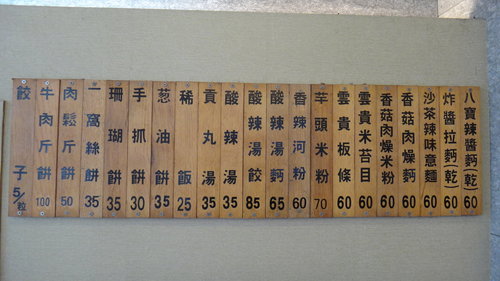 八寶辣醬麪(乾) 60
炸醬拉麪(乾) 60
沙茶辣味意麵 60
香菇肉燥麪 60
香菇肉燥米粉 60
雲貴米苔目 60
雲貴板條 60
芋頭米粉 70
香辣河粉 60
酸辣湯麪 65
酸辣湯餃 85
酸辣湯 35
貢丸湯 35
稀飯 25
葱油餅 35
手抓餅 30
珊瑚餅 35
一窩絲餅 35
肉鬆斤餅 50
牛肉斤餅 100
餃子 5/粒